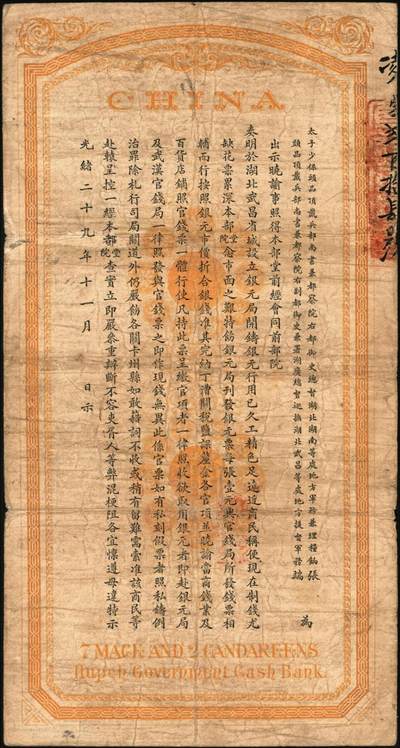 CHINA
太子少保頭品頂戴兵部尚書兼都察院右都御史總督湖北湖南等處地方軍務兼理糧餉張
頭品頂戴兵部尚書兼都察院右副都御史兼署湖廣總督巡撫湖北武昌等處地方提督軍務端
為
出示曉諭事照得本部堂前經會同前部院
奏明於湖北武昌省城設立銀元局開鑄銀元行用已久工精色足遠近商民稱便現在制錢尤
缺花票累深本部堂院念市面之難特飭銀元局刊發銀元票每張壹元與官錢局所發錢票相
輔而行按照銀元市價折合銀錢准其完納丁漕關稅鹽課釐金各官項並曉諭當商錢業及
百貨店鋪照官錢票一體行使凡持此票呈繳官項者一律照收欲取用銀元者即赴銀元局
及武漢官錢局一律照發與官錢票之即作現錢無異此係官票如有私刻假票者照私鑄例
治罪除札行司局關道外仍嚴飭各關卡州縣如敢藉詞不收或稍有留難需索准該商民等
赴轅呈控一經本部堂院查實立即嚴參重辦斷不容吏胥人等弊混梗阻各宜懍遵毋違特示
光緒二十九年十一月 日示
7 MACE AND 2 CANDAREENS
Hupeh Government Cash Bank.